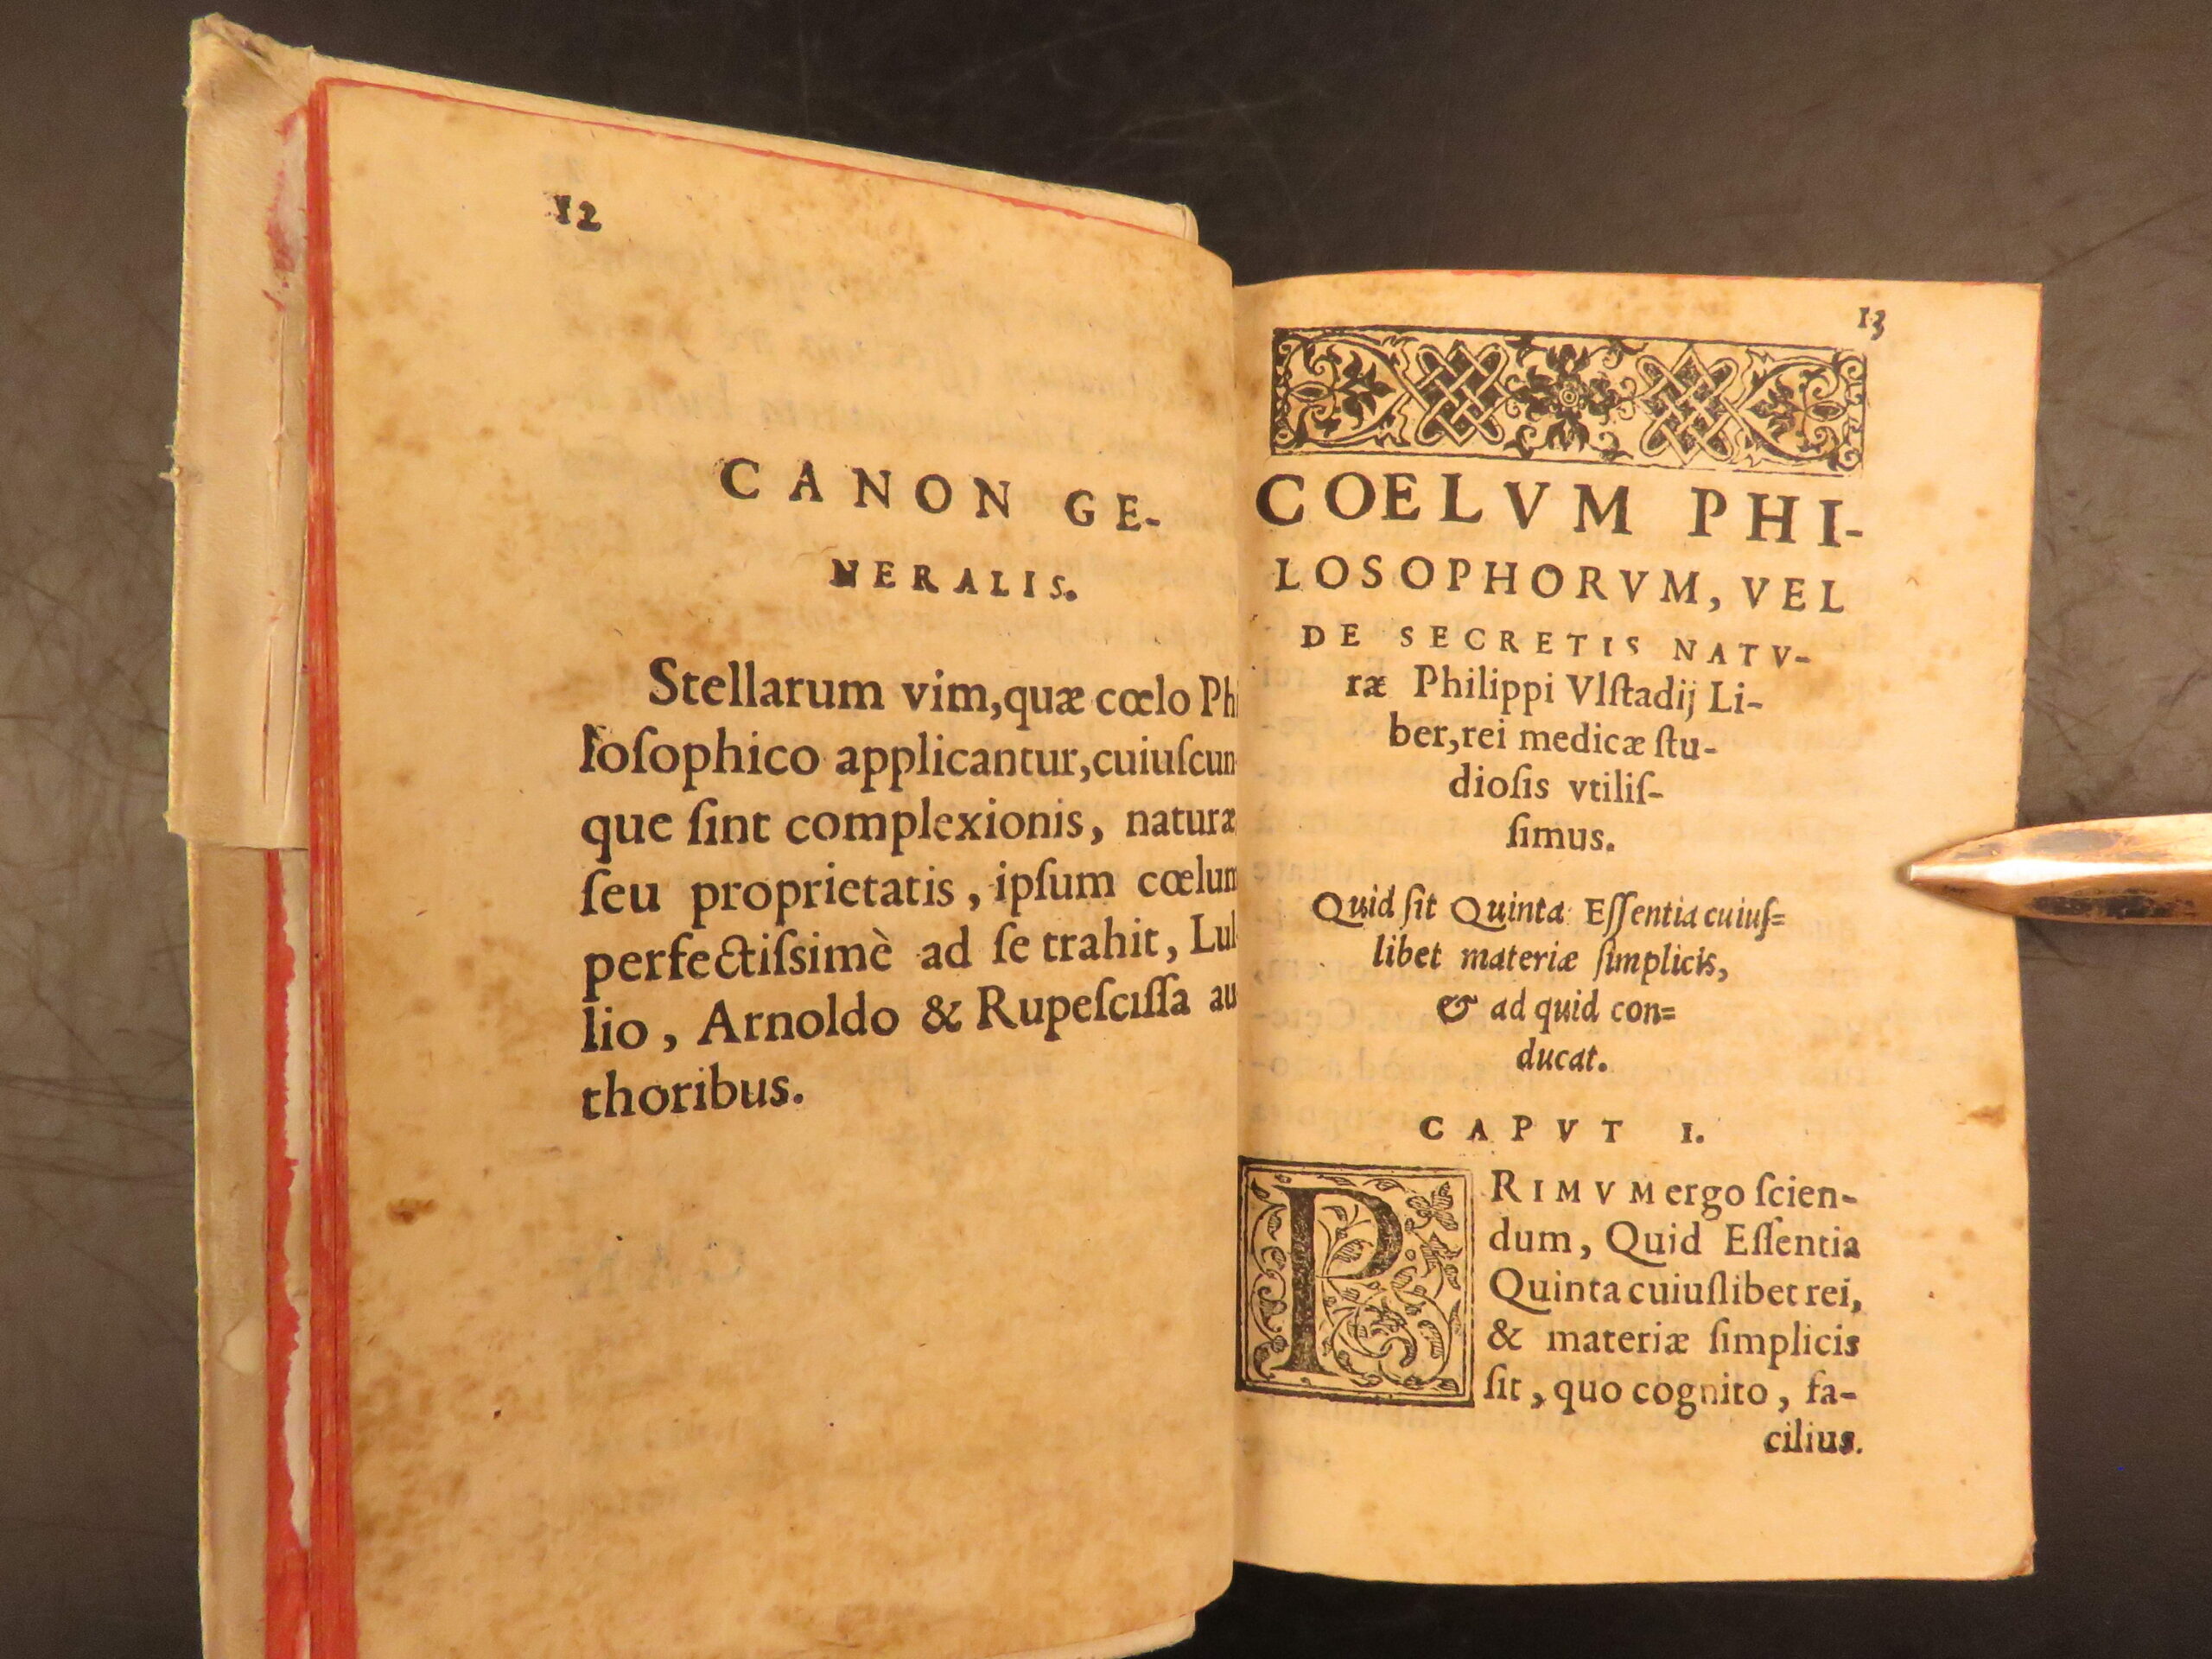 12
CANON GE-
NERALIS.
Stellarum vim, quæ cœlo Phi
loſophico applicantur, cuiuſcun
que ſint complexionis, naturæ
ſeu proprietatis, ipſum cœlum
perfectiſsimè ad ſe trahit, Lul
lio, Arnoldo & Rupeſciſſa au
thoribus.
13
COELVM PHI-
LOSOPHORVM, VEL
DE SECRETIS NATV-
ræ Philippi Vlſtadij Li-
ber, rei medicæ ſtu-
dioſis vtiliſ-
ſimus.
Quid ſit Quinta Eſſentia cuiuſ=
libet materiæ ſimplicis,
& ad quid con=
ducat.
CAPVT I.
PRIMVM ergo ſcien-
dum, Quid Eſſentia
Quinta cuiuſlibet rei,
& materiæ ſimplicis
ſit, quo cognito, fa-
cilius.